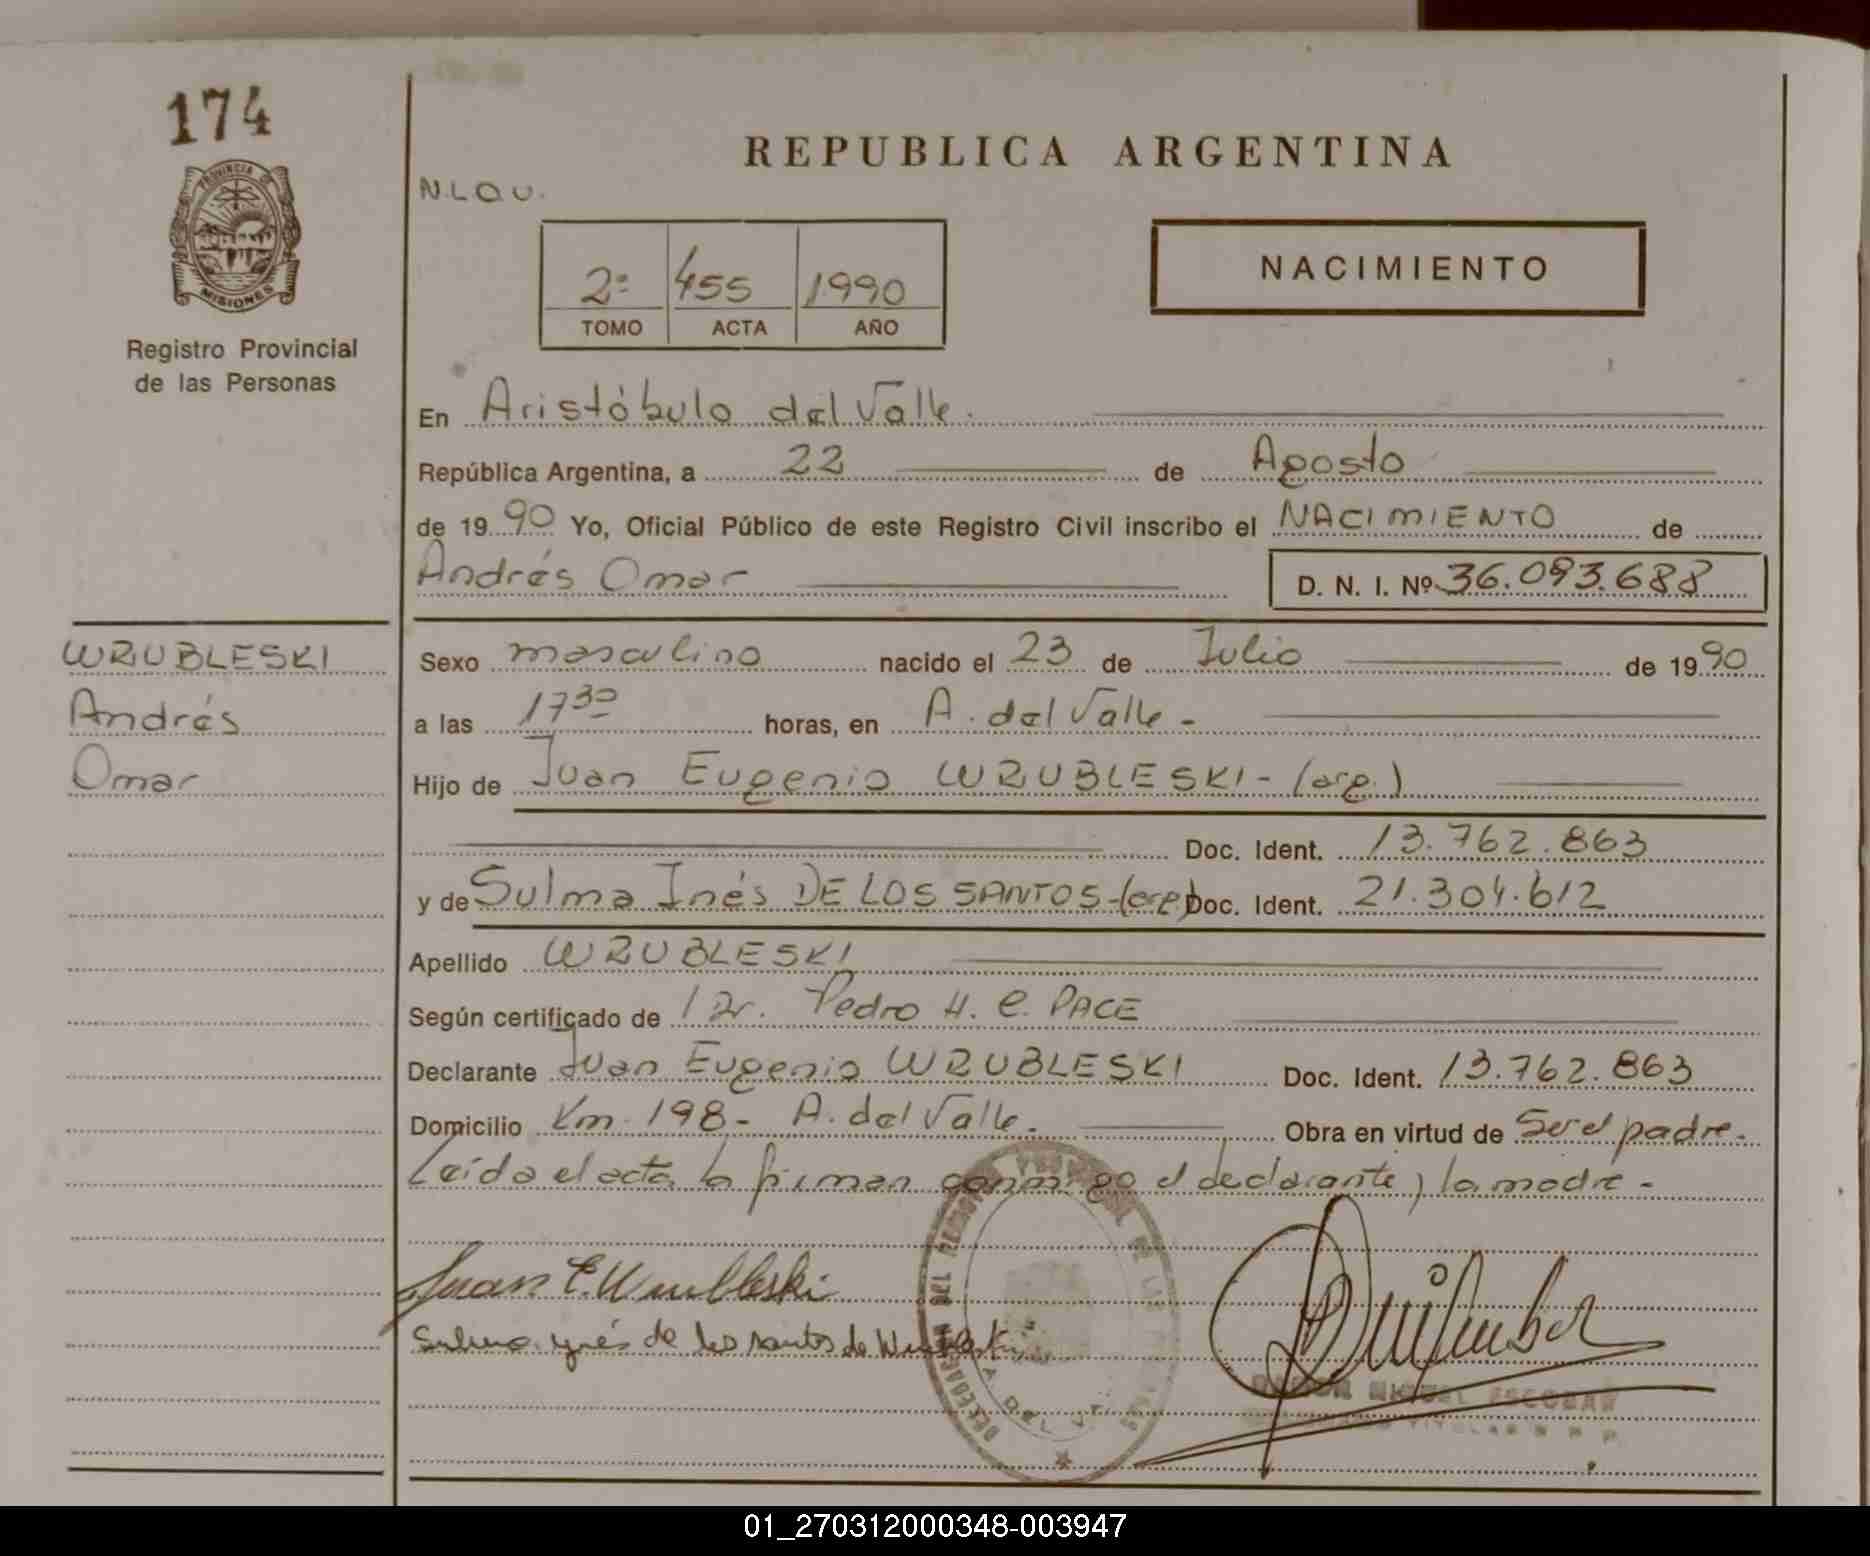 174
PROVINCIA DE
MISIONES
Registro Provincial
de las Personas
WRUBLESKI
Andrés
Omar
REPUBLICA ARGENTINA
N.L.O.U.
2º 455 1990
TOMO ACTA AÑO
NACIMIENTO
En Aristóbulo del Valle.
República Argentina, a 22 de Agosto
de 1990 Yo, Oficial Público de este Registro Civil inscribo el NACIMIENTO de
Andrés Omar D. N. I. Nº 36.093.688
Sexo masculino nacido el 23 de Julio de 1990
a las 17 30 horas, en A. del Valle -
Hijo de Juan Eugenio WRUBLESKI - (arg.)
Doc. Ident. 13.762.863
y de Sulma Inés DE LOS SANTOS - (arg) Doc. Ident. 21.304.612
Apellido WRUBLESKI
Según certificado de Dr. Pedro H. C. PACE
Declarante Juan Eugenio WRUBLESKI Doc. Ident. 13.762.863
Domicilio Km 198 - A. del Valle. Obra en virtud de Ser el padre.
Leída el acta la firman conmigo el declarante y la madre -
Juan E. Wrubleski
Sulma ynés de los santos de Wrubleski
RAMON MIGUEL ESCOBAR
TITULAR R P P
01_270312000348-003947